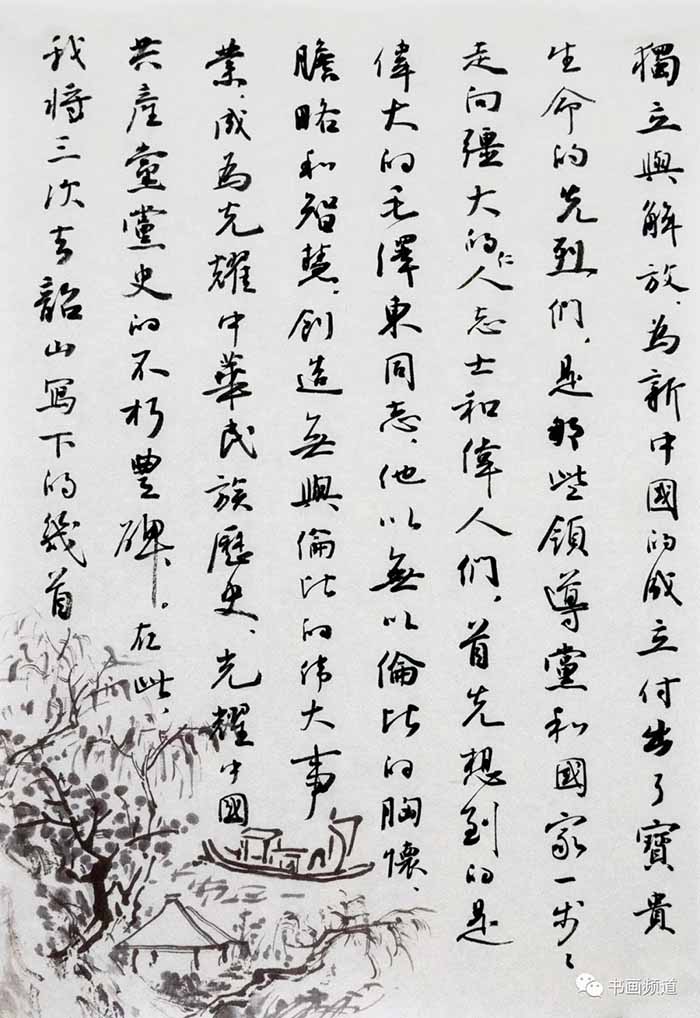 獨立與解放，為新中國的成立付出了寶貴
生命的先烈們，是那些領導黨和國家一步々
走向疆大的仁人志士和偉人們，首先想到的是
偉大的毛澤東同志、他以無以倫比的胸懷、
膽略和智慧，創造無與倫比的伟大事
業，成為光耀中華民族歷史、光耀中國
共產黨黨史的不朽豐碑。在此，
我将三次去韶山寫下的幾首
书画频道